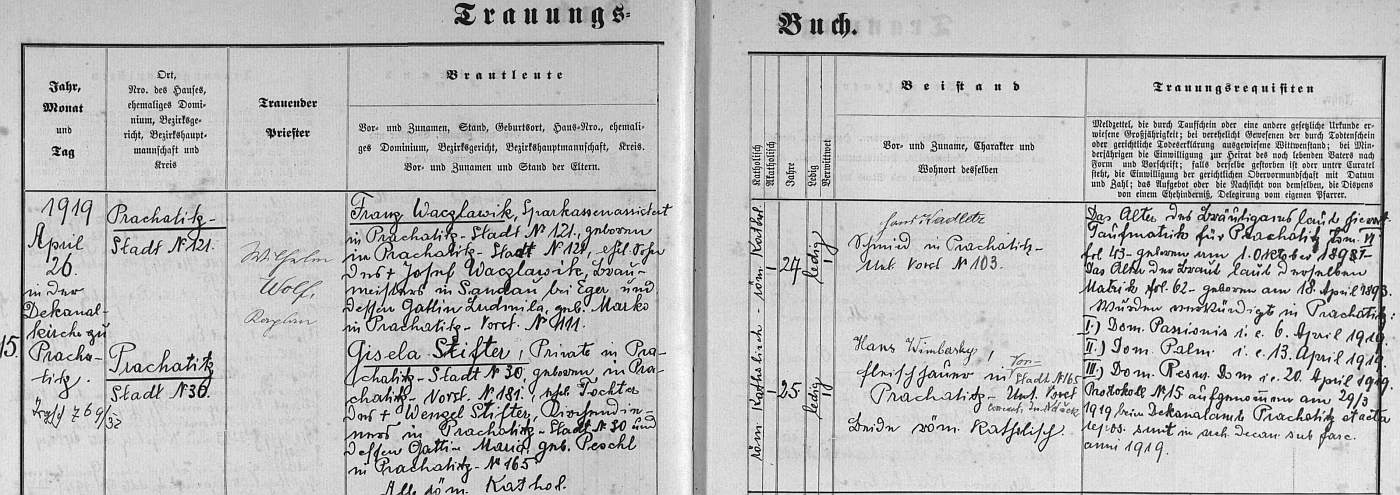 Trauungs-
Buch.
Jahr,
Monat
und
Tag
Ort,
Nro. des Hauses,
ehemaliges Domi-
nium, Bezirksge-
richt, Bezirkshaupt-
mannschaft und
Kreis
Trauender
Priester
Brautleute
Vor- und Zunamen, Stand, Geburtsort, Haus-Nro., ehemali-
ges Dominium, Bezirksgericht, Bezirkshauptmannschaft, Kreis.
Vor- und Zunamen und Stand der Eltern.
Katholisch
Akatholisch
Jahre
Ledig
Verwittwet
Beistand
Vor- und Zuname, Charakter und
Wohnort desselben
Trauungsrequisiten
Meldzettel, die durch Taufschein oder eine andere gesetzliche Urkunde er-
wiesene Großjährigkeit; bei verehelicht Gewesenen der durch Todtenschein
oder gerichtliche Todeserklärung ausgewiesene Wittwenstand; bei Min-
derjährigen die Einwilligung zur Heirat des noch lebenden Vaters nach
Form und Vorschrift; falls derselbe gestorben ist oder unter Curatel
steht, die Einwilligung der gerichtlichen Obervormundschaft mit Datum
und Zahl; das Aufgebot oder die Nachsicht von demselben, die Dispens
von einem Ehehinderniß, Delegirung vom eigenen Pfarrer.
15.
1919
April
26.
in der
Dekanal-
kirche zu
Pracha-
titz.
Prachatitz-
Stadt N 121.
Prachatitz
Stadt N 30.
Wilhelm
Wolf,
Kaplan
Franz Waczlawik, Sparkassenassistent
in Prachatitz-Stadt N 121, geboren
in Prachatitz-Stadt N 121, ehel. Sohn
des † Josef Waczlawik, Brau-
meisters in Sandau bei Eger und
dessen Gattin Ludmila, geb. Marko
in Prachatitz-Vorst. N 111.
Gisela Stifter, Private in Pra-
chatitz-Stadt N 30, geboren in Pra-
chatitz-Vorst. N 181, ehel. Tochter
des † Wenzel Stifter, Kirchendie-
ners in Prachatitz-Stadt N 30 und
dessen Gattin Maria, geb. Peschl
in Prachatitz-N 165
Alle röm. Kathol.
röm. Kathol.
24
ledig
röm. Katholisch
25
ledig
Hans Kadletz
Schmied in Prachatitz-
Unt. Vorst. N 103.
Hans Wimbersky,
Fleischhauer in
Stadt N 165
Prachatitz-Unt. Vorst
Beide röm. Katholisch.
Das Alter des Bräutigams laut hierort.
Taufmatrik für Prachatitz tom. VI
fol 43-geboren am 1. Oktober 1894-
Das Alter der Braut laut derselben
Matrik fol. 62-geboren am 18. April 1893.
Wurden verkündigt in Prachatitz:
I.) Dom. Passionis i. e. 6. April 1919.
II.) Dom. Palm. i. e. 13. April 1919.
III.) Dom. Resur. Dom i. e. 20. April 1919.
Protokoll N 15 aufgenommen am 29/3
1919 beim Dekanalamte Prachatitz et acta
repos. sunt in arch. decan. sub fasc.
anni 1919.